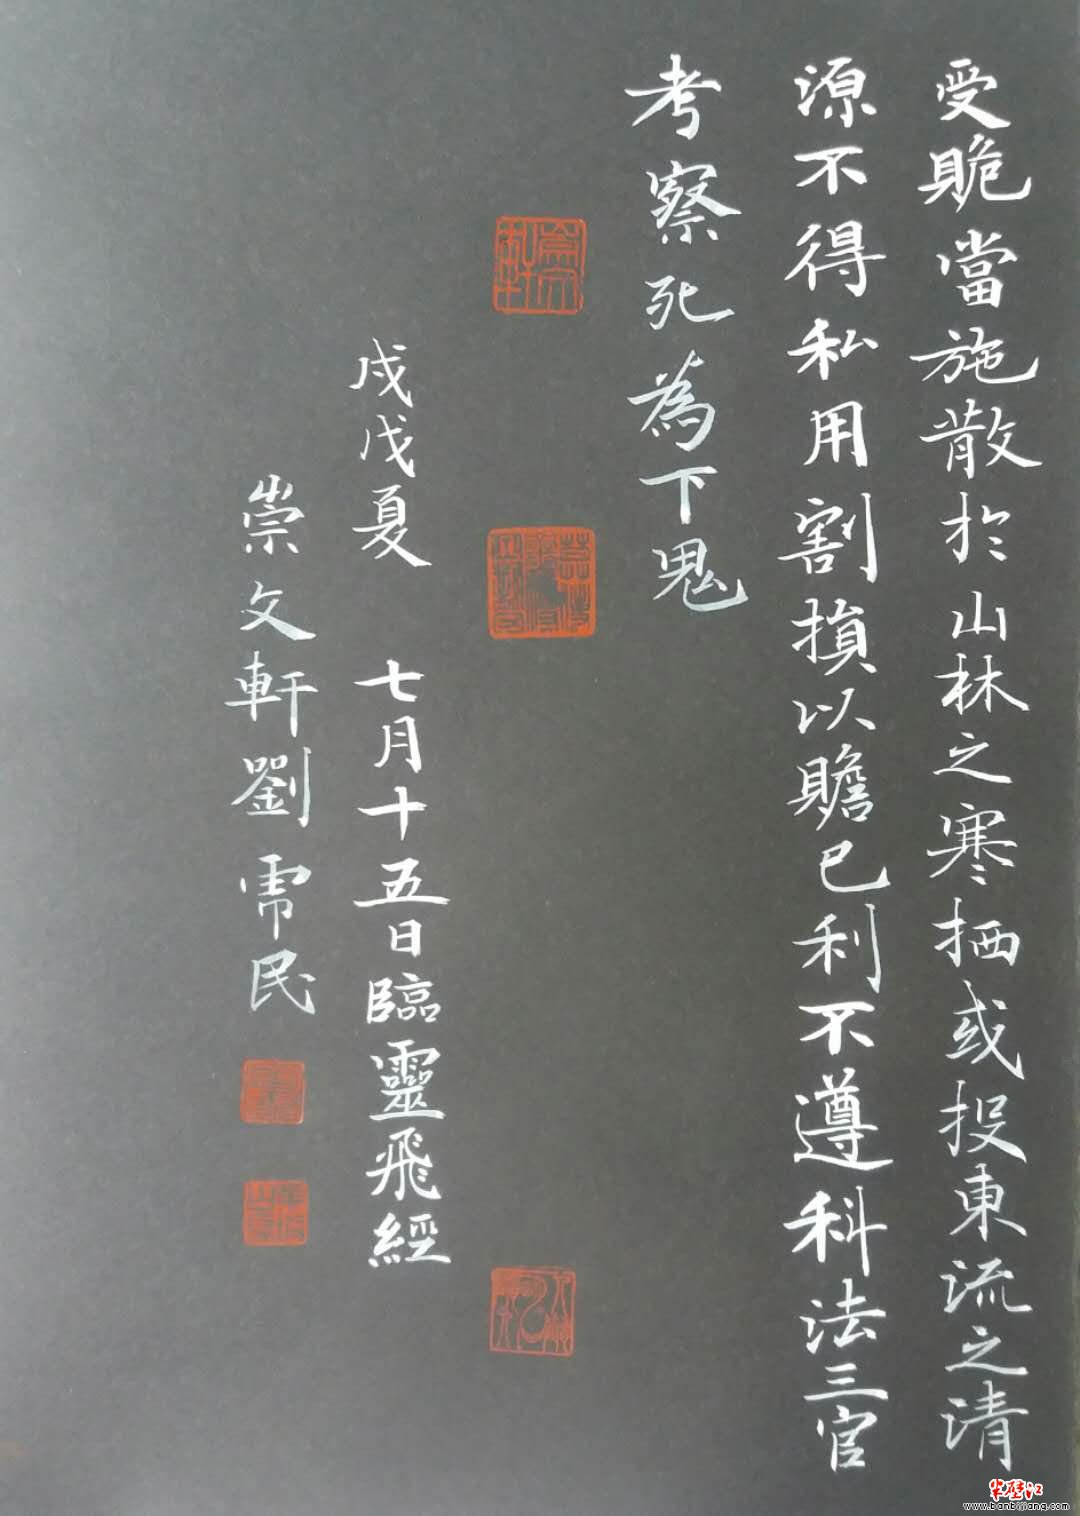 受賄當施散於山林之寒栖或投東流之清
源不得私用割損以贍己利不遵科法三官
考察死為下鬼
戊戌夏 七月十五日臨靈飛經
崇文軒劉雷民
半壁江
www.banbijiang.com